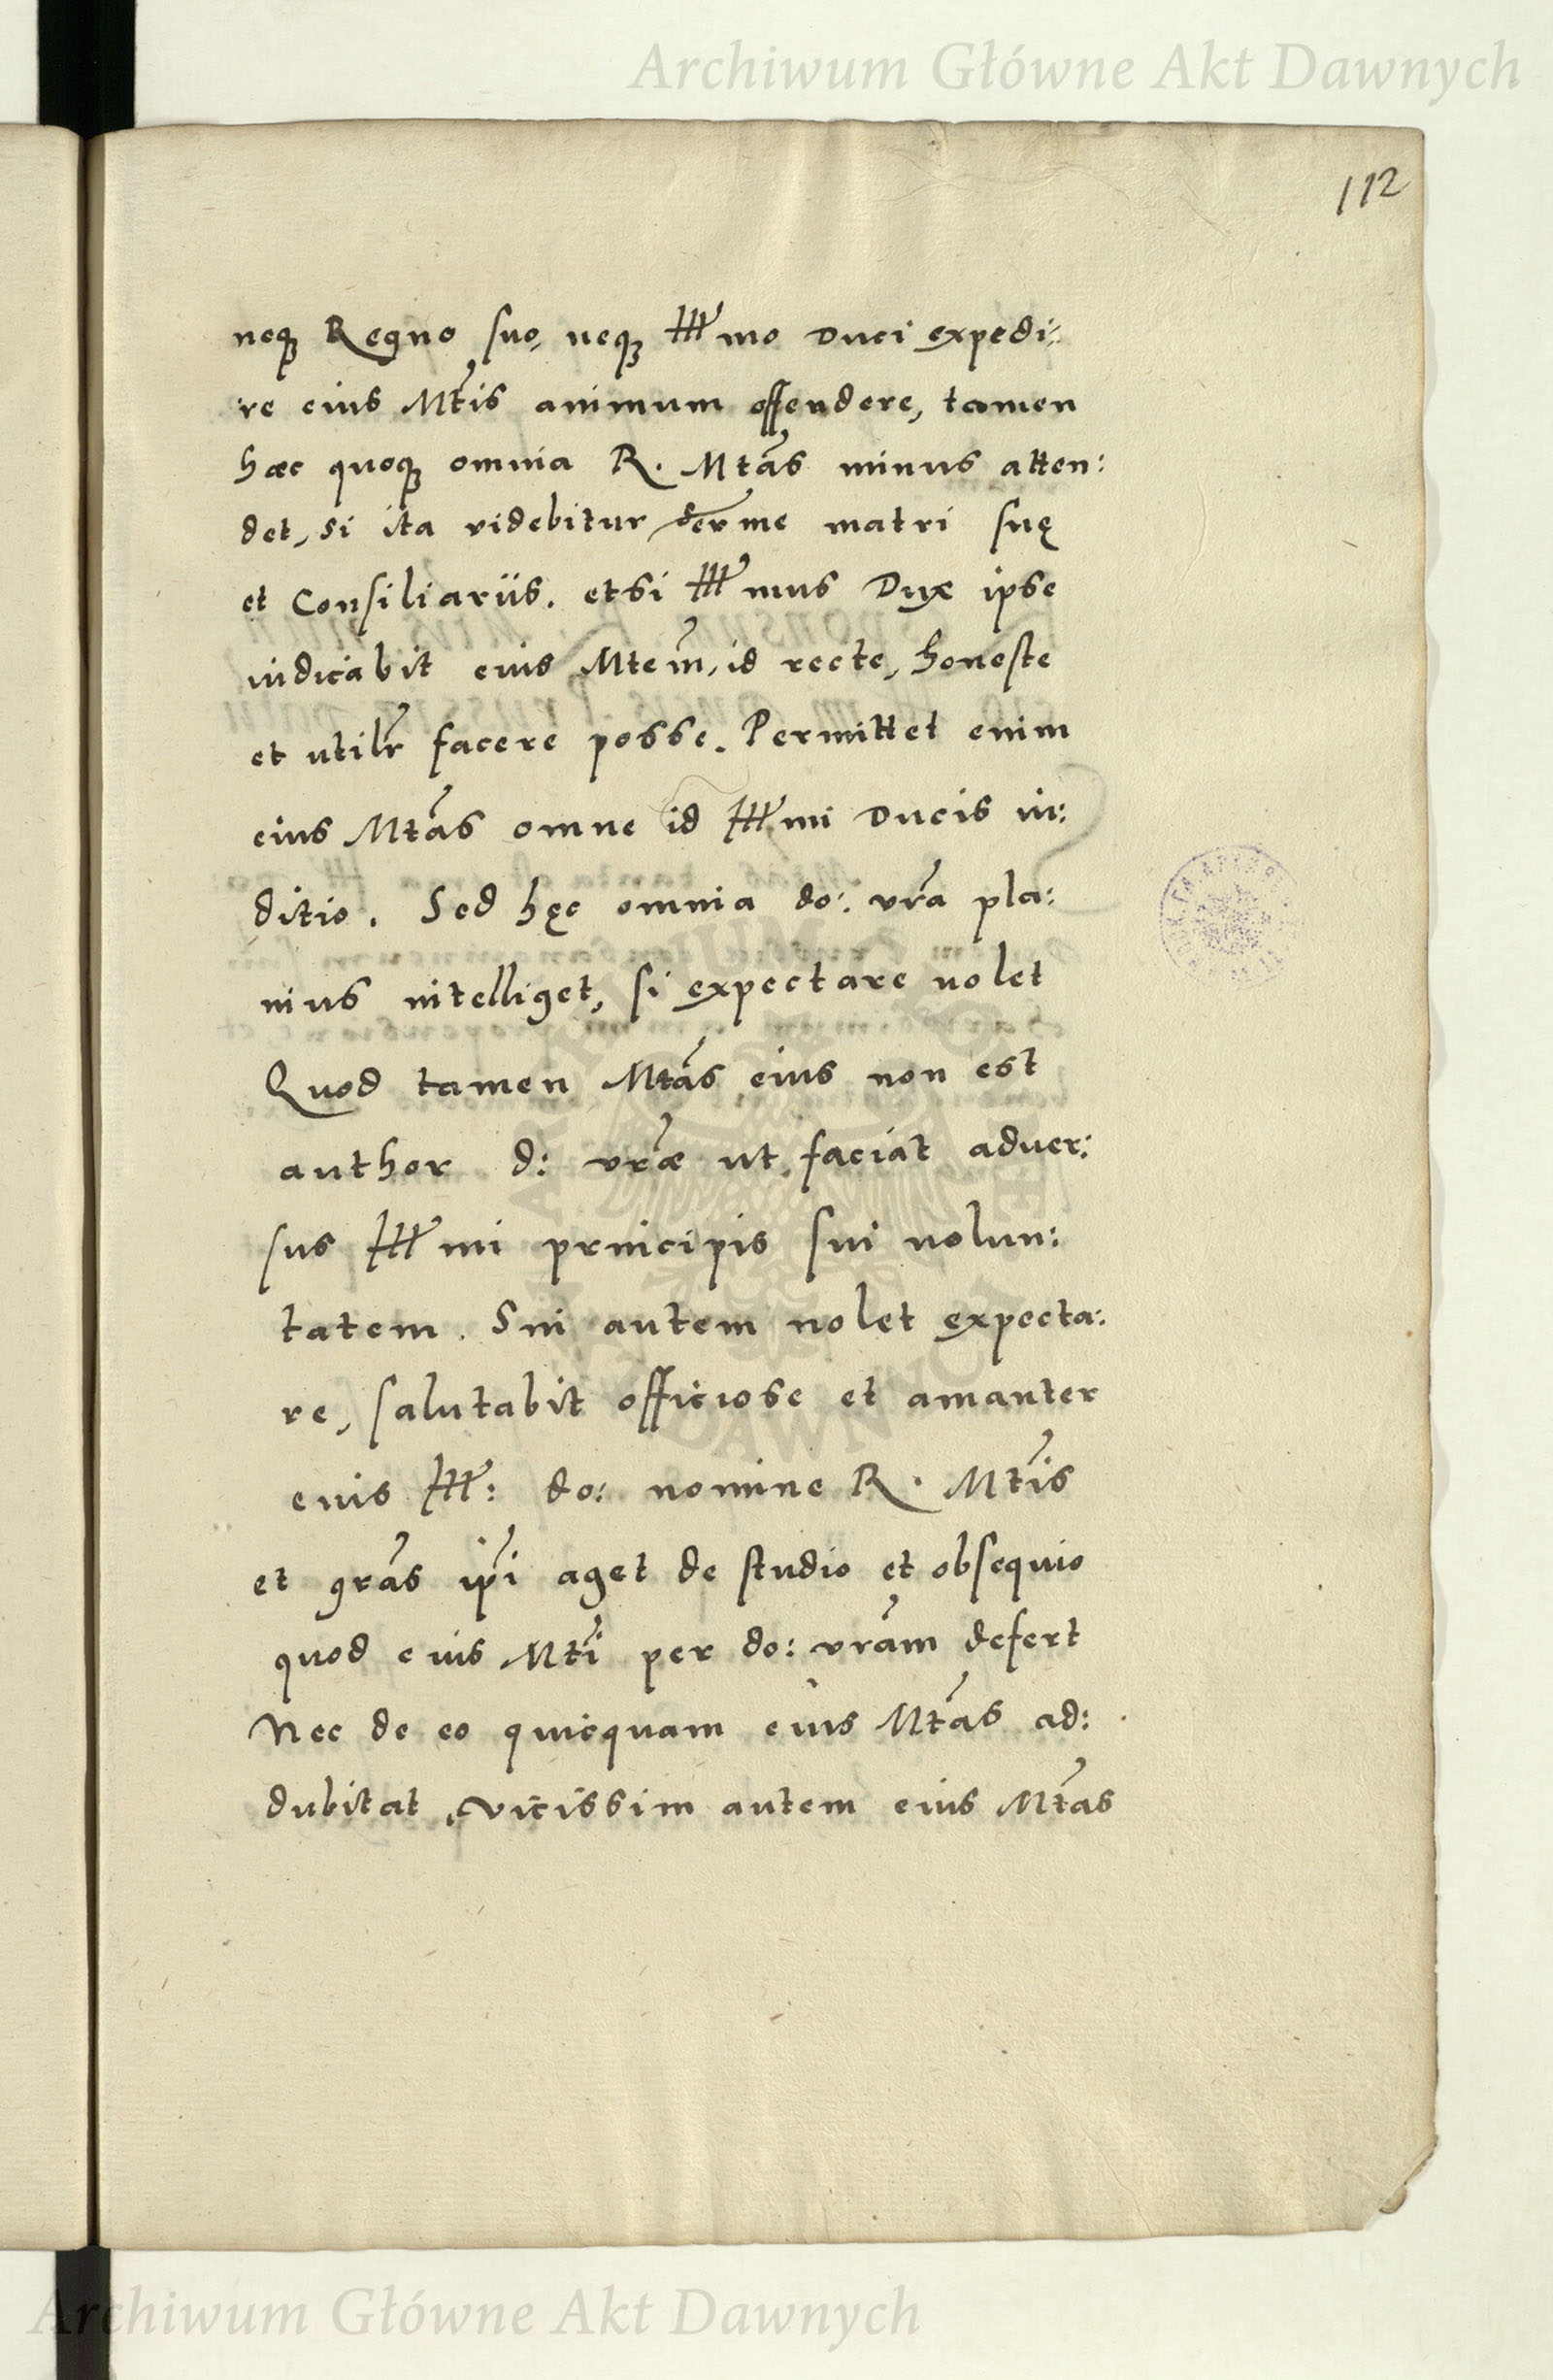 Archiwum Główne Akt Dawnych
112
neq; Regno suo, neq; Illmo Duci expedi:
re eius Mtis animum offendere, tamen
haec quoq; omnia R. Mtas minus atten:
det, si ita videbitur Serme matri suę
et Consiliariis. etsi Illmus Dux ipse
iudicabit eius Mtem, id recte, honeste
et utilr facere posse. Permittet enim
eius Mtas omne id Illmi Ducis iu:
ditio. Sed hęc omnia do: vra pla:
nius intelliget, si expectare volet
Quod tamen Mtas eius non est
author d: vrae ut faciat adver:
sus Illmi principis sui volun:
tatem. Sin autem nolet expecta:
re, salutabit officiose et amanter
eius Ill: do: nomine R. Mtis
et gras ipi aget de studio et obsequio
quod eius Mti per do: vram defert
Nec de eo quicquam eius Mtas ad:
dubitat, vicissim autem eius Mtas
Archiwum Główne Akt Dawnych